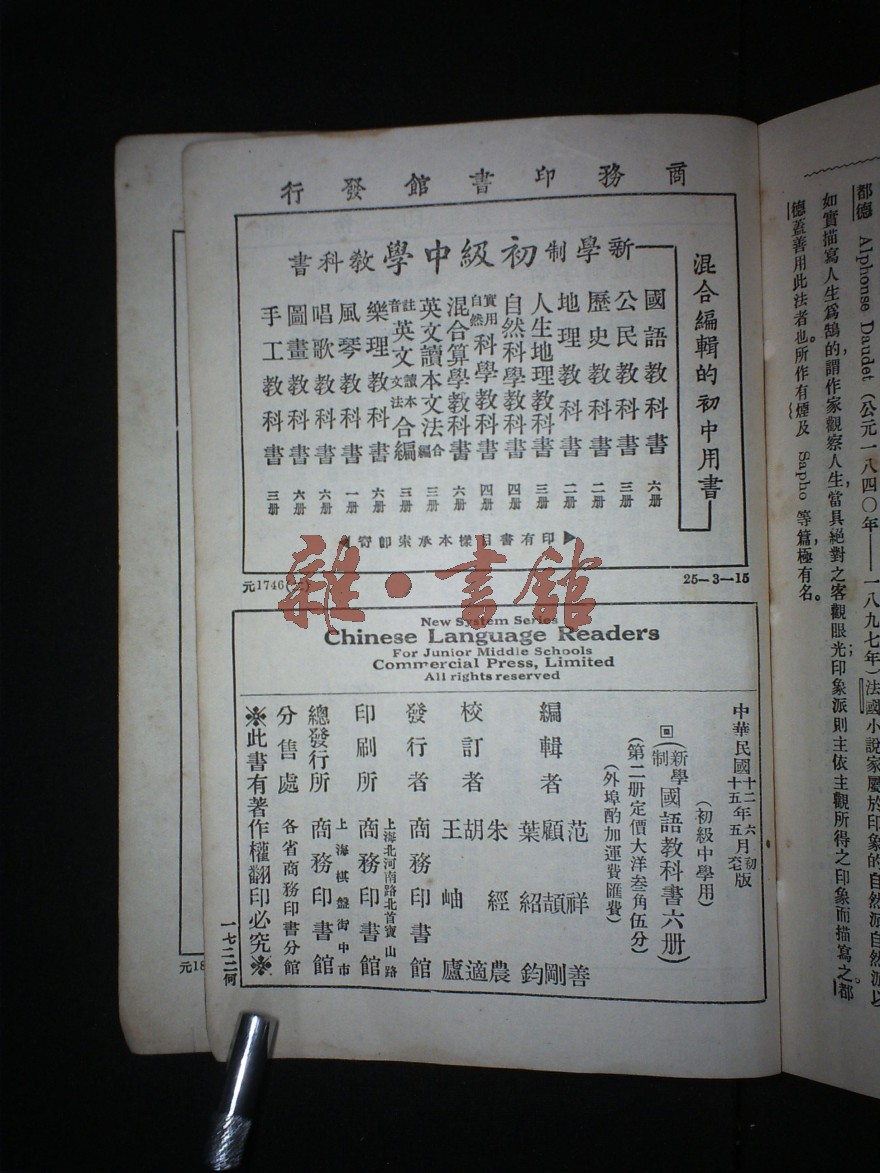 商務印書館發行
混合編輯的初中用書
新學制初級中學教科書
國語教科書 六册
公民教科書 三册
歷史教科書 二册
地理教科書 二册
人生地理教科書 三册
自然科學教科書 四册
實用自然科學教科書 四册
混合算學教科書 六册
英文讀本文法合編 三册
註音英文讀本文法合編 三册
樂理教科書 六册
風琴教科書 一册
唱歌教科書 六册
圖畫教科書 六册
手工教科書 三册
印有書目樣本承索卽寄
元1746(二)
25-3-15
雜·書館
New System Series
Chinese Language Readers
For Junior Middle Schools
Commercial Press, Limited
All rights reserved
中華民國十二年六月初版
十五年五月
(初級中學用)
(新學制國語教科書六册)
(第二册定價大洋叁角伍分)
(外埠酌加運費匯費)
編輯者 范祥善 顧頡剛 葉紹鈞
校訂者 朱經農 胡適 王岫廬
發行者 商務印書館
上海北河南路北首寶山路
印刷所 商務印書館
上海棋盤街中市
總發行所 商務印書館
分售處 各省商務印書分館
※此書有著作權翻印必究※
一七二二何
元18
都德 Alphonse Daudet (公元一八四〇年——一八九七年)法國小說家屬於印象的自然派自然派以
如實描寫人生爲鵠的,謂作家觀察人生,當具絕對之客觀眼光;印象派則主依主觀所得之印象而描寫之。都
德蓋善用此法者也。所作有煙及 Sapho 等篇,極有名。